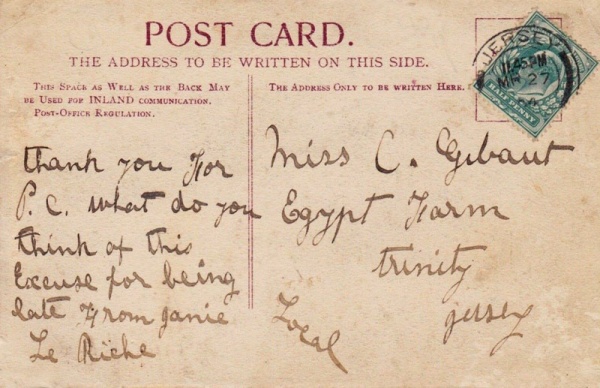 POST CARD.
THE ADDRESS TO BE WRITTEN ON THIS SIDE.
THIS SPACE AS WELL AS THE BACK MAY
BE USED FOR INLAND COMMUNICATION.
POST-OFFICE REGULATION.
THE ADDRESS ONLY TO BE WRITTEN HERE.
JERSEY
11.45PM
MR 27
HALF PENNY
thank you For
P.C. what do you
think of this
Excuse for being
late From janie
Le Riche
Miss C. Gibaut
Egypt Farm
trinity
jersey
Local